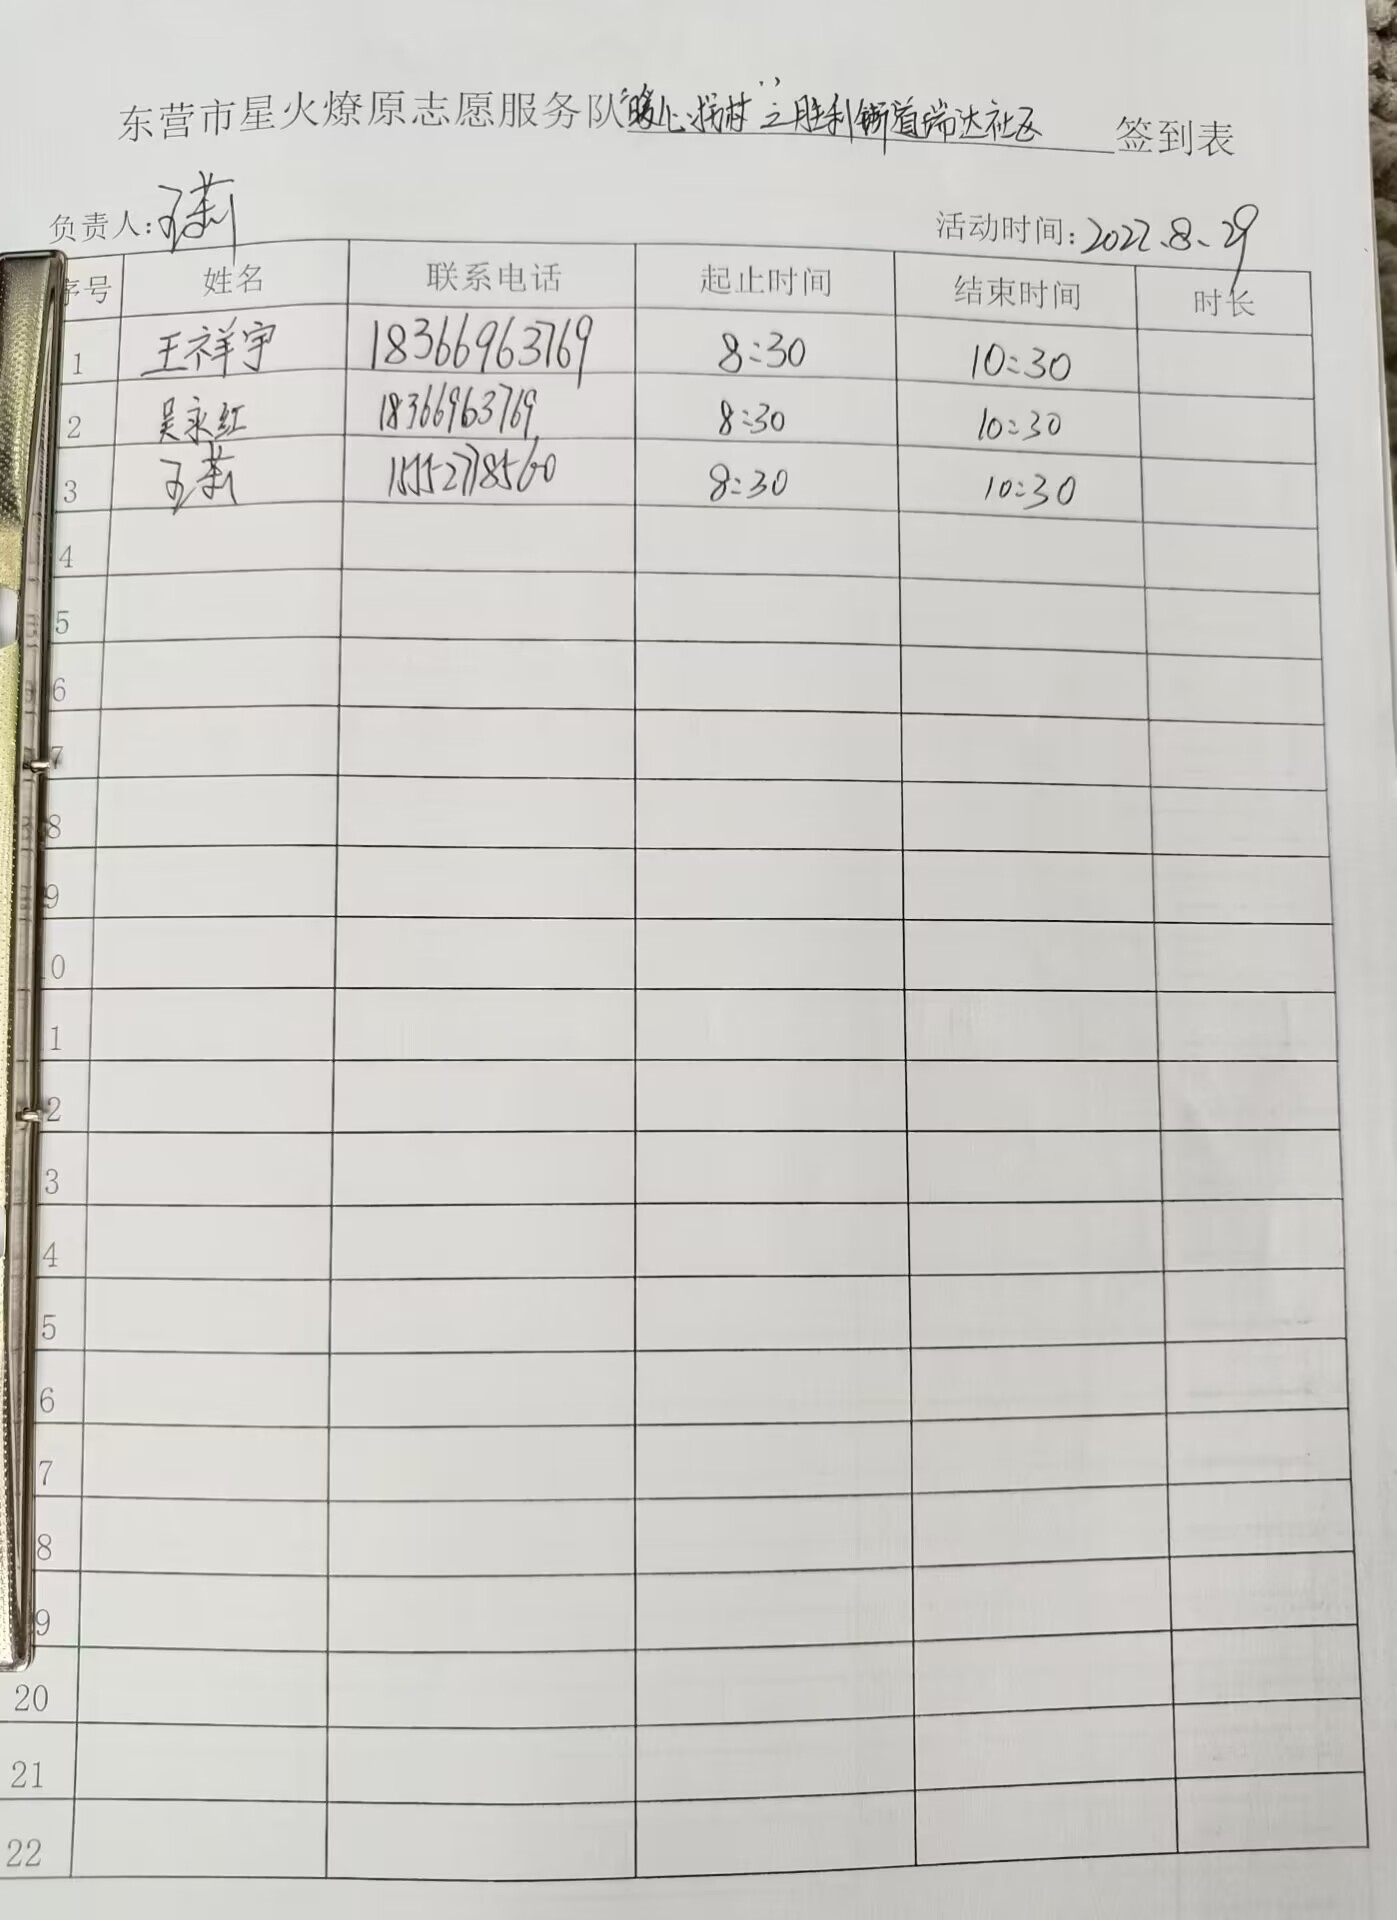 东营市星火燎原志愿服务队"暖心拐杖"之胜利街道瑞达社区 签到表
负责人:王莉 活动时间:2022.8.29
序号 姓名 联系电话 起止时间 结束时间 时长
1 王祥宇 18366963769 8:30 10:30
2 吴永红 18366963769 8:30 10:30
3 王莉 15552778560 8:30 10:30
4
5
6
7
8
9
10
1
2
3
4
5
6
7
8
9
20
21
22